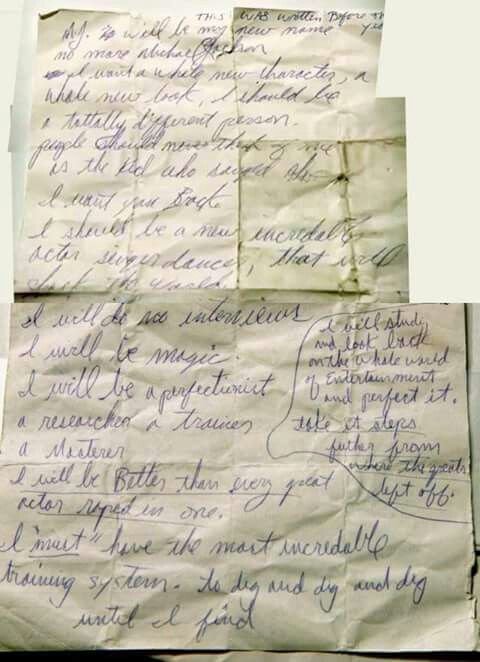 THIS WAS Written Before th
M.J. will be my new name
no more Michael Jackson
I want a whole new character, a
whole new look, I should be
a tottally different person.
people should never think of me
as the kid who sang
I want you Back
I should be a new incredable
actor singer dancer, that will
shock the world.
I will do no interviews
I will be magic.
I will be a perfectionist
a researcher a trainer
a Masterer
I will be Better than every great
actor roped in one.
I "must" have the most incredable
training system. to dig and dig and dig
until I find
I will study
and look back
on the whole world
of Entertainment
and perfect it.
take it steps
futher from
where the greats
left off.